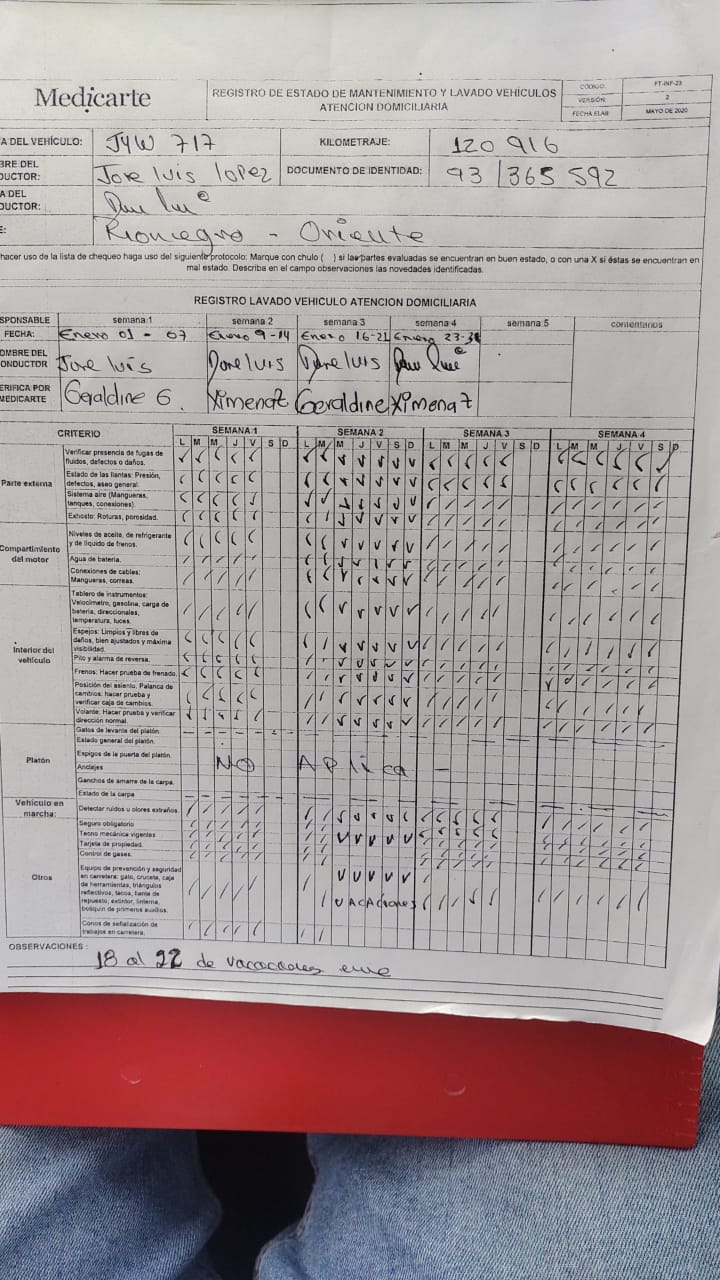 Medicarte
REGISTRO DE ESTADO DE MANTENIMIENTO Y LAVADO VEHÍCULOS
ATENCION DOMICILIARIA
CÓDIGO: FT-INF-23
VERSIÓN: 2
FECHA ELAB MAYO DE 2020
A DEL VEHÍCULO: JYW 717 KILOMETRAJE: 120 916
BRE DEL
DUCTOR: Jose Luis Lopez DOCUMENTO DE IDENTIDAD: 93 365 592
A DEL
DUCTOR:
E: Rionegro - Oriente
hacer uso de la lista de chequeo haga uso del siguiente protocolo: Marque con chulo ( ) si las partes evaluadas se encuentran en buen estado, o con una X si éstas se encuentran en
mal estado. Describa en el campo observaciones las novedades identificadas.
REGISTRO LAVADO VEHICULO ATENCION DOMICILIARIA
SPONSABLE semana 1 semana 2 semana 3 semana 4 semana 5 comentarios
FECHA: Enero 01 - 07 Enero 9-14 Enero 16-21 Enero 23-31
OMBRE DEL
ONDUCTOR Jose Luis Jose Luis Jose Luis
ERIFICA POR
MEDICARTE Geraldine G. Ximena Z Geraldine Ximena Z
CRITERIO SEMANA 1 SEMANA 2 SEMANA 3 SEMANA 4
L M M J V S D L M M J V S D L M M J V S D L M M J V S D
Parte externa
Verificar presencia de fugas de
fluidos, defectos o daños.
Estado de las llantas: Presión,
defectos, aseo general.
Sistema aire (Mangueras,
tanques, conexiones).
Exhosto: Roturas, porosidad.
Compartimiento
del motor
Niveles de aceite, de refrigerante
y de líquido de frenos.
Agua de bateria.
Conexiones de cables;
Mangueras, correas.
Interior del
vehículo
Tablero de instrumentos:
Velocímetro, gasolina, carga de
batería, direccionales,
temperatura, luces.
Espejos: Limpios y libres de
daños, bien ajustados y máxima
visibilidad.
Pito y alarma de reversa.
Frenos: Hacer prueba de frenado.
Posición del asiento, Palanca de
cambios: hacer prueba y
verificar caja de cambios.
Volante: Hacer prueba y verificar
dirección normal.
Platón
Gatos de levante del platón.
Estado general del platón.
Espigos de la puerta del platón.
Anclajes NO Aplica
Ganchos de amarre de la carpa.
Estado de la carpa
Vehículo en
marcha:
Detectar ruidos u olores extraños.
Otros
Seguro obligatorio
Tecno mecánica vigentes
Tarjeta de propiedad.
Control de gases.
Equipo de prevención y seguridad
en carretera: gato, cruceta, caja
de herramientas, triángulos
reflectivos, tacos, llanta de
repuesto, extintor, linterna,
botiquín de primeros auxilios.
VACACiones
Conos de señalización de
trabajos en carretera.
OBSERVACIONES :
18 al 22 de vacaciones